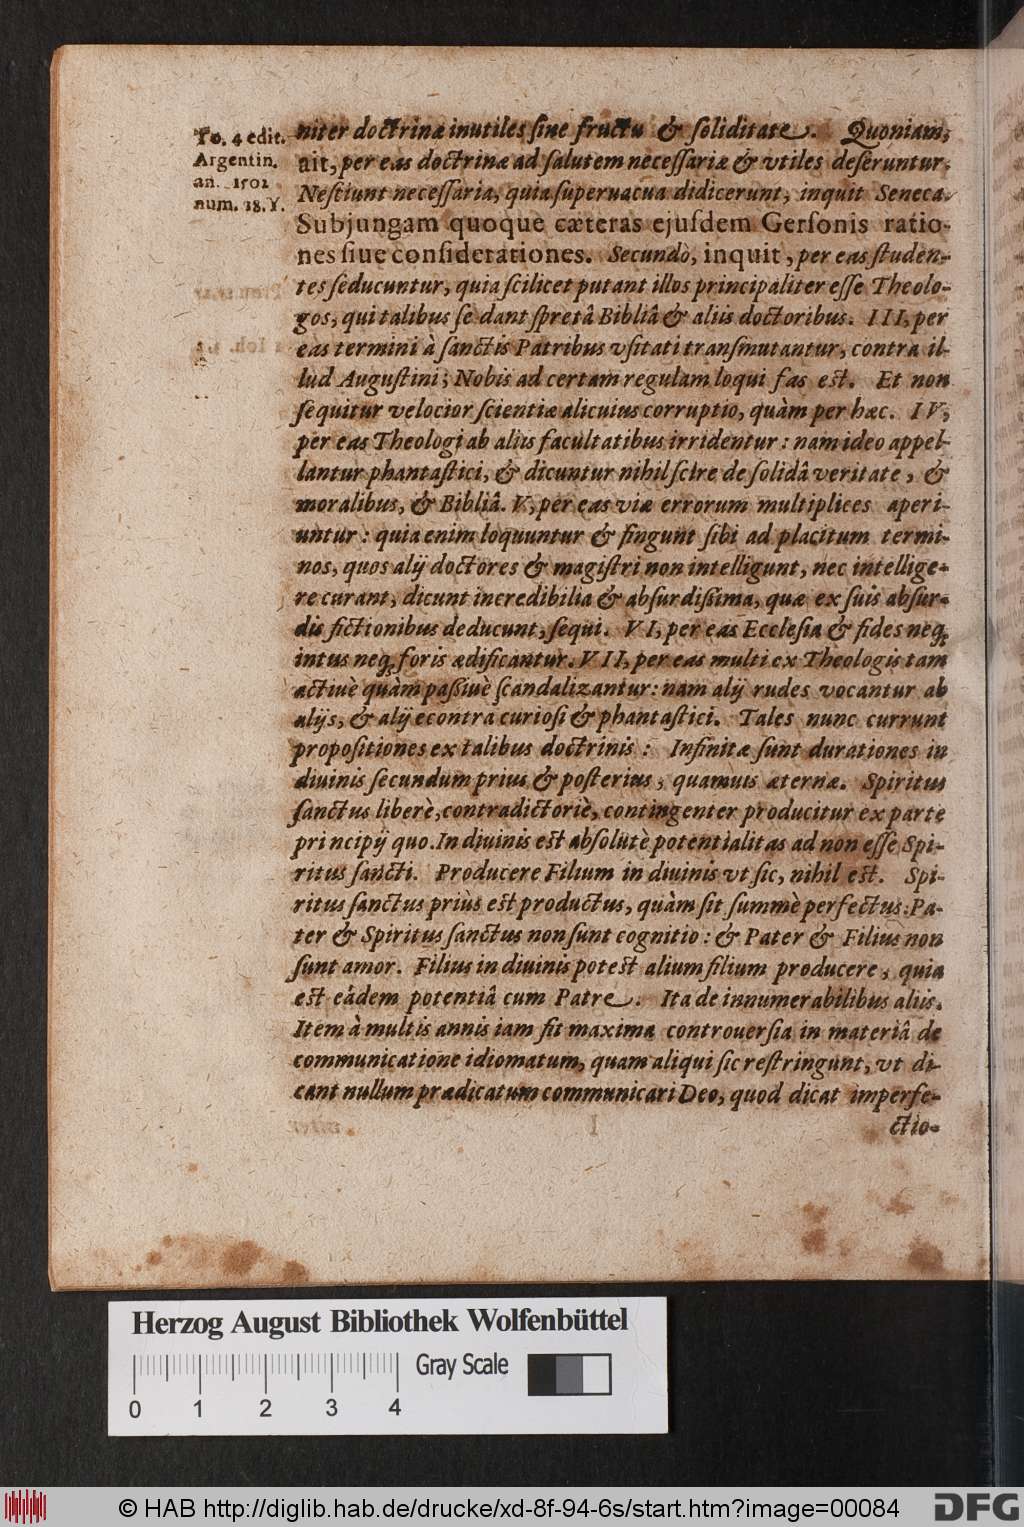 To. 4 edit.
Argentin.
an. 1502
num. 18. Y.
niter doctrinæ inutiles ſine fructu & ſoliditate. Quoniam,
ait, per eas doctrinæ ad ſalutem neceſſariæ & vtiles deſeruntur.
Neſciunt neceſſaria, quia ſuperuacua didicerunt, inquit Seneca.
Subjungam quoque cæteras ejuſdem Gerſonis ratio-
nes ſiue conſiderationes. Secundò, inquit, per eas ſtuden-
tes ſeducuntur, quia ſcilicet putant illos principaliter eſſe Theolo-
gos, qui talibus ſe dant ſpretâ Bibliâ & aliis doctoribus. III, per
eas termini à ſanctis Patribus vſitati tranſmutantur, contra il-
lud Auguſtini; Nobis ad certam regulam loqui fas eſt. Et non
ſequitur velocior ſcientiæ alicuius corruptio, quàm per hæc. IV,
per eas Theologi ab aliis facultatibus irridentur: nam ideo appel-
lantur phantaſtici, & dicuntur nihil ſcire de ſolidâ veritate, &
moralibus, & Bibliâ. V, per eas viæ errorum multiplices aperi-
untur: quia enim loquuntur & fingunt ſibi ad placitum termi-
nos, quos alij doctores & magiſtri non intelligunt, nec intellige-
re curant, dicunt incredibilia & abſurdiſſima, quæ ex ſuis abſur-
dis fictionibus deducunt, ſequi. VI, per eas Eccleſia & fides neq;
intus neq; foris ædificantur. VII, per eas multi ex Theologis tam
actiuè quàm paſſiuè ſcandalizantur: nam alij rudes vocantur ab
alijs, & alij econtra curioſi & phantaſtici. Tales nunc currunt
propoſitiones ex talibus doctrinis: Infinitæ ſunt durationes in
diuinis ſecundum prius & poſterius, quamuis æternæ. Spiritus
ſanctus liberè, contradictoriè, contingenter producitur ex parte
principij quo. In diuinis eſt abſolutè potentialitas ad non eſſe Spi-
ritus ſancti. Producere Filium in diuinis vt ſic, nihil eſt. Spi-
ritus ſanctus priùs eſt productus, quàm ſit ſummè perfectus. Pa-
ter & Spiritus ſanctus non ſunt cognitio: & Pater & Filius non
ſunt amor. Filius in diuinis poteſt alium filium producere, quia
eſt eâdem potentiâ cum Patre. Ita de innumerabilibus aliis.
Item à multis annis iam fit maxima controuerſia in materiâ de
communicatione idiomatum, quam aliqui ſic reſtringunt, vt di-
cant nullum prædicatum communicari Deo, quod dicat imperfe-
ctio-
Herzog August Bibliothek Wolfenbüttel
Gray Scale
0 1 2 3 4
© HAB http://diglib.hab.de/drucke/xd-8f-94-6s/start.htm?image=00084
DFG